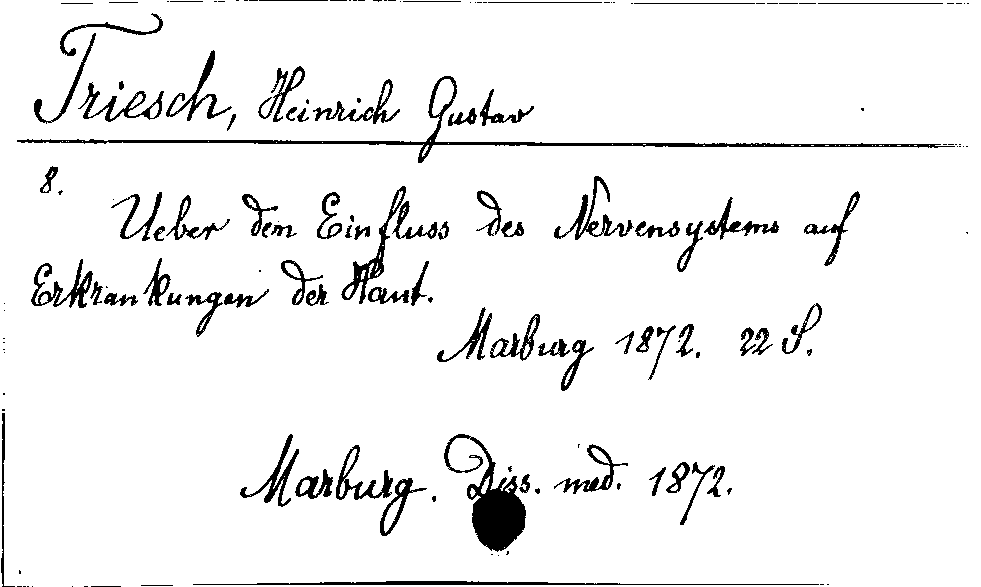 Triesch, Heinrich Gustav
8.
Ueber den Einfluss des Nervensystems auf
Erkrankungen der Haut.
Marburg 1872. 22 S.
Marburg. Diss. med. 1872.